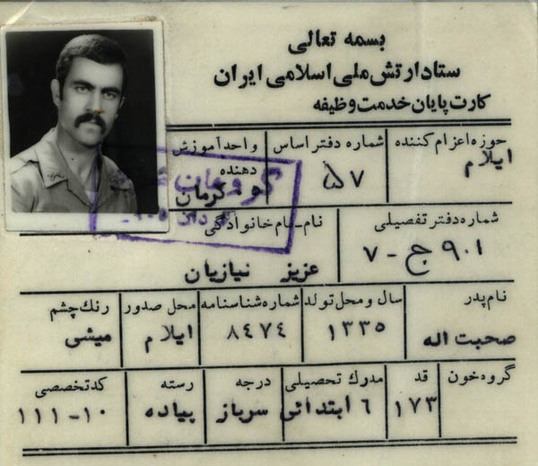 بسمه تعالی
ستاد ارتش ملی اسلامی ایران
کارت پایان خدمت وظیفه
حوزه اعزام کننده
ایلام
شماره دفتر اساس
۵۷
واحد آموزش دهنده
کرمان
شماره دفتر تفصیلی
۹۰۱ ج - ۷
نام - نام خانوادگی
عزیز نیازیان
نام پدر
صحبت اله
سال و محل تولد
۱۳۳۵
شماره شناسنامه
۸٤۷٤
محل صدور
ایلام
رنگ چشم
میشی
گروه خون
قد
۱۷۳
مدرک تحصیلی
۶ ابتدائی
درجه
سرباز
رسته
پیاده
کد تخصصی
۱۱۱-۱۰